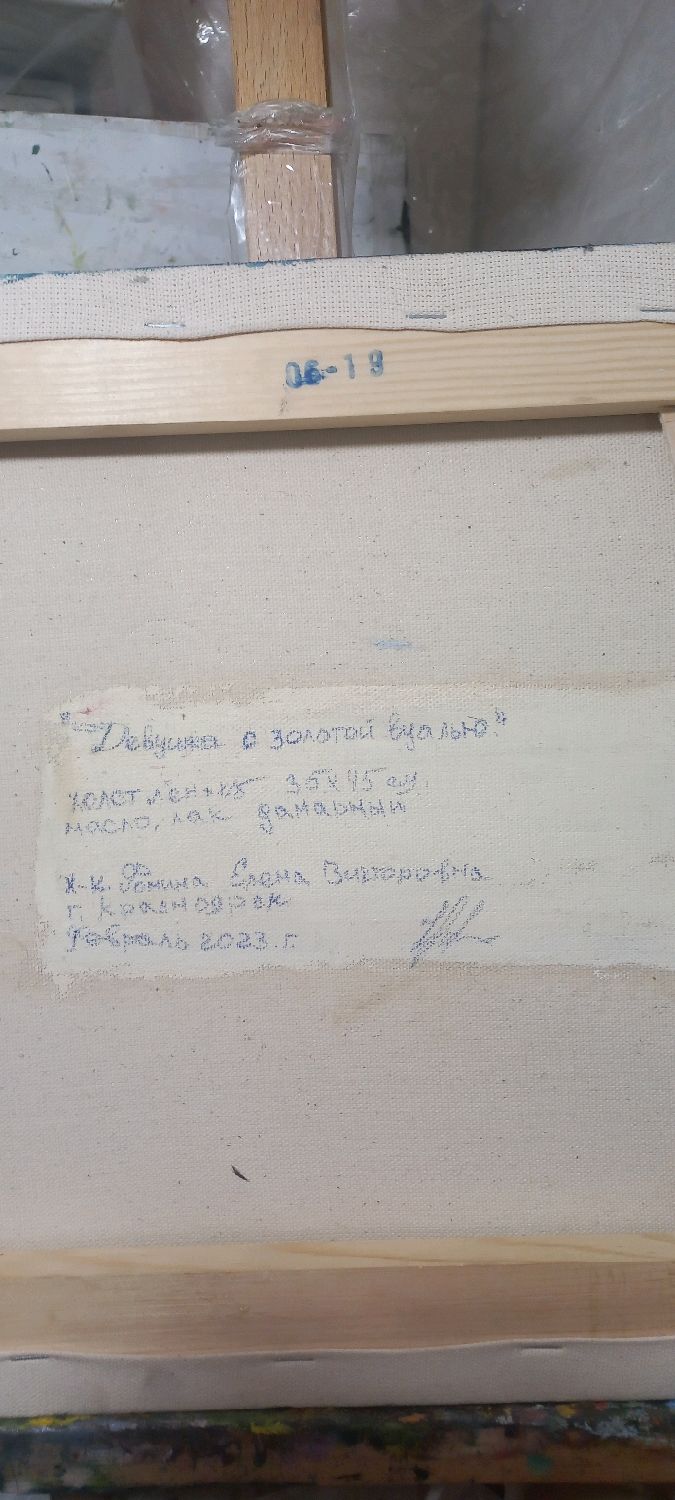 06-19
"Девушка с золотой вуалью."
холст лён+хб 35х45 см
масло, лак дамарный
х-к Фомина Елена Викторовна
г. Красноярск
Февраль 2023 г.